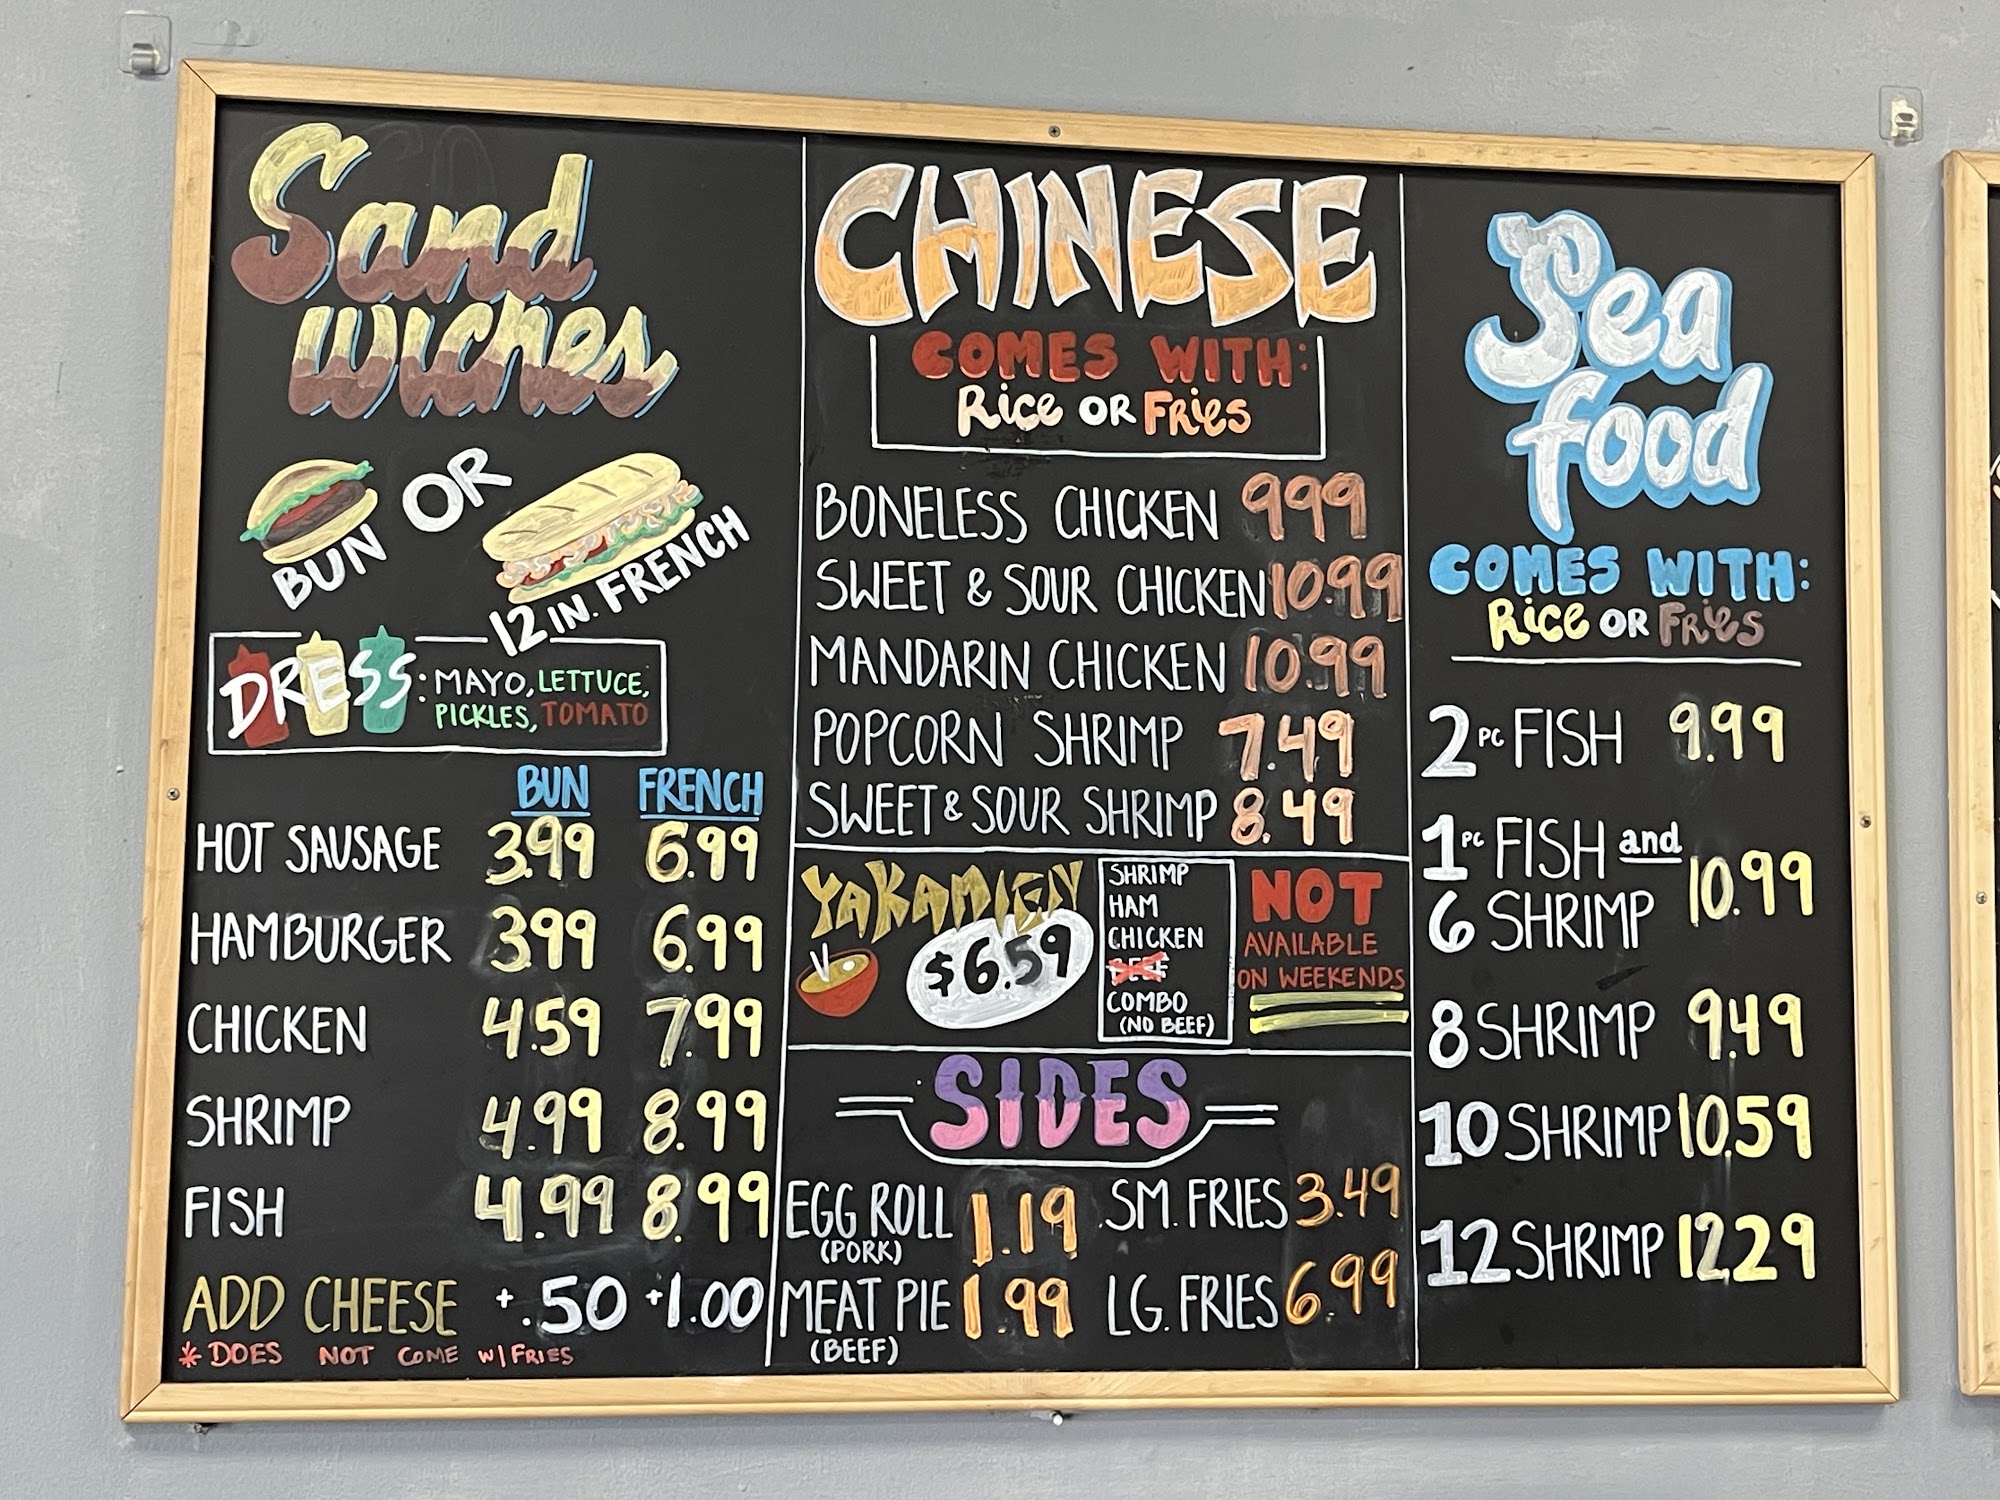 Sand
wiches
BUN OR
12 IN. FRENCH
DRESS: MAYO, LETTUCE,
PICKLES, TOMATO
BUN FRENCH
HOT SAUSAGE 3.99 6.99
HAMBURGER 3.99 6.99
CHICKEN 4.59 7.99
SHRIMP 4.99 8.99
FISH 4.99 8.99
ADD CHEESE +.50 +1.00
* DOES NOT COME W/ FRIES
CHINESE
COMES WITH:
Rice OR Fries
BONELESS CHICKEN 999
SWEET & SOUR CHICKEN 10.99
MANDARIN CHICKEN 10.99
POPCORN SHRIMP 7.49
SWEET & SOUR SHRIMP 8.49
YAKAMIEN
$6.59
SHRIMP
HAM
CHICKEN
BEEF
COMBO
(NO BEEF)
NOT
AVAILABLE
ON WEEKENDS
SIDES
EGG ROLL 1.19
(PORK)
MEAT PIE 1.99
(BEEF)
SM. FRIES 3.49
LG. FRIES 6.99
Sea
food
COMES WITH:
Rice OR Fries
2 PC FISH 9.99
1 PC FISH and
6 SHRIMP 10.99
8 SHRIMP 9.49
10 SHRIMP 10.59
12 SHRIMP 12.29